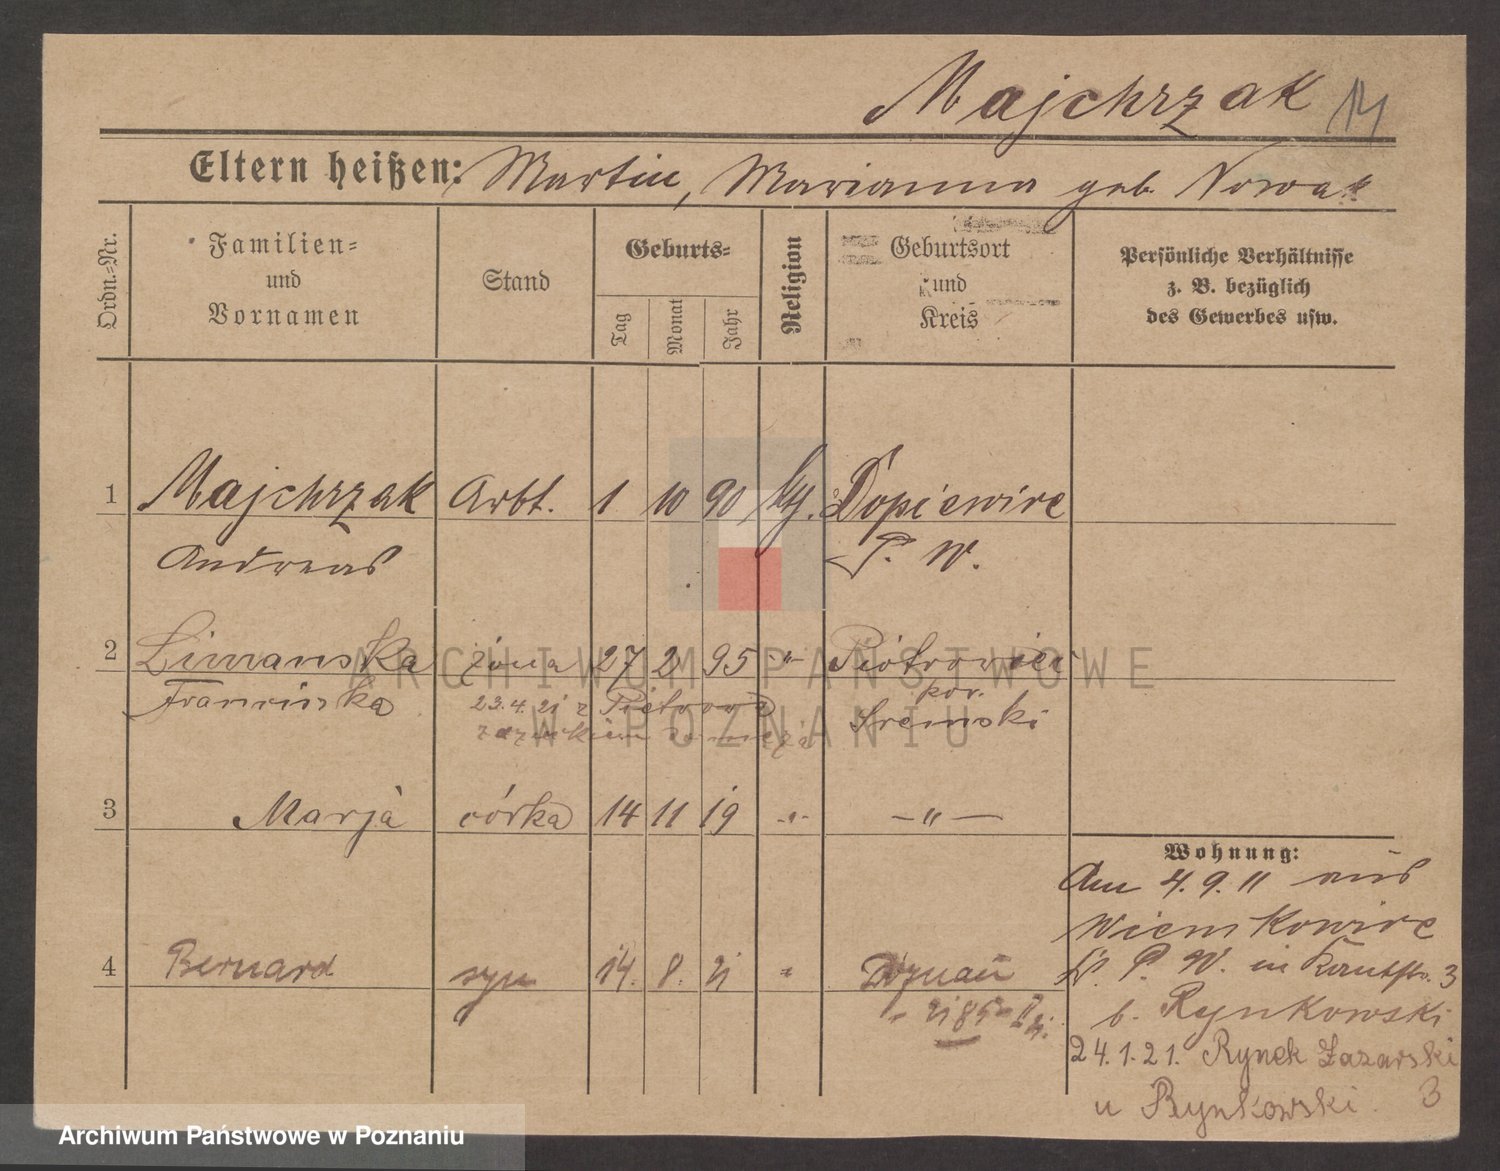 Majchrzak 14
Eltern heißen: Martin, Marianna geb. Nowak
Ordn.-Nr.
Familien-
und
Vornamen
Stand
Geburts-
Tag
Monat
Jahr
Religion
Geburtsort
und
Kreis
Persönliche Verhältnisse
z. B. bezüglich
des Gewerbes usw.
1 Majchrzak Arbt. 1 10 90 Dopiewiec
Andreas P. W.
2 Limanska żona 27 2 95 " Piotrowiec
Franciszka 23.4.21 z pow.
Sremski
3 Marja córka 14 11 19 -"- -"-
Wohnung:
Am 4. 9. 11 aus
Wienkowice
4 Bernard syn 14. 8. 21 "
Kr. P. W. in 3
b. Rynkowski
24.1.21. Rynek Łazarski
3
u Rynkowski.
ARCHIWUM PAŃSTWOWE
W POZNANIU
Archiwum Państwowe w Poznaniu